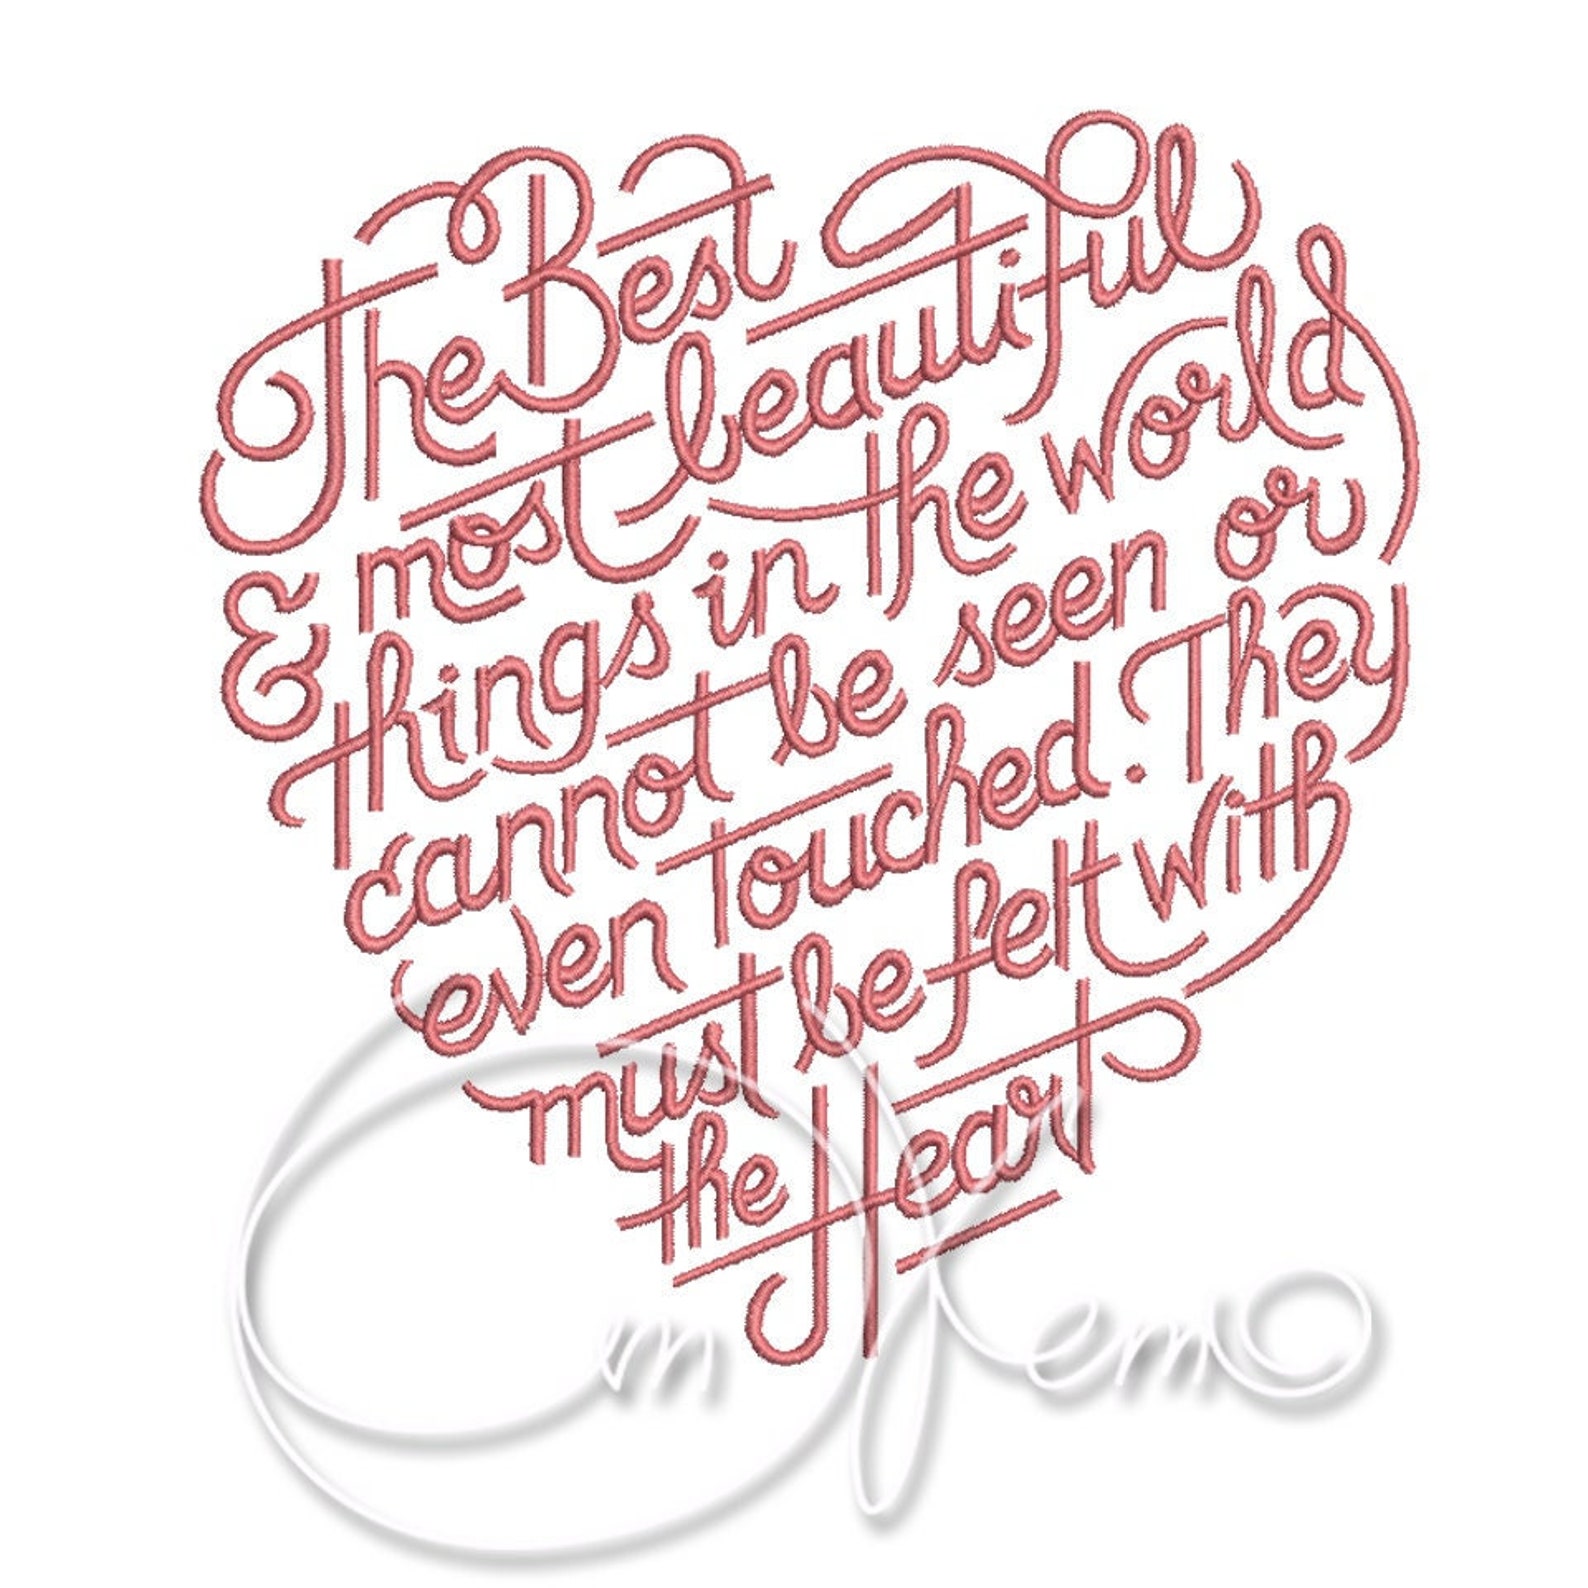 The Best
& most beautiful
things in the world
cannot be seen or
even touched. They
must be felt with
the Heart